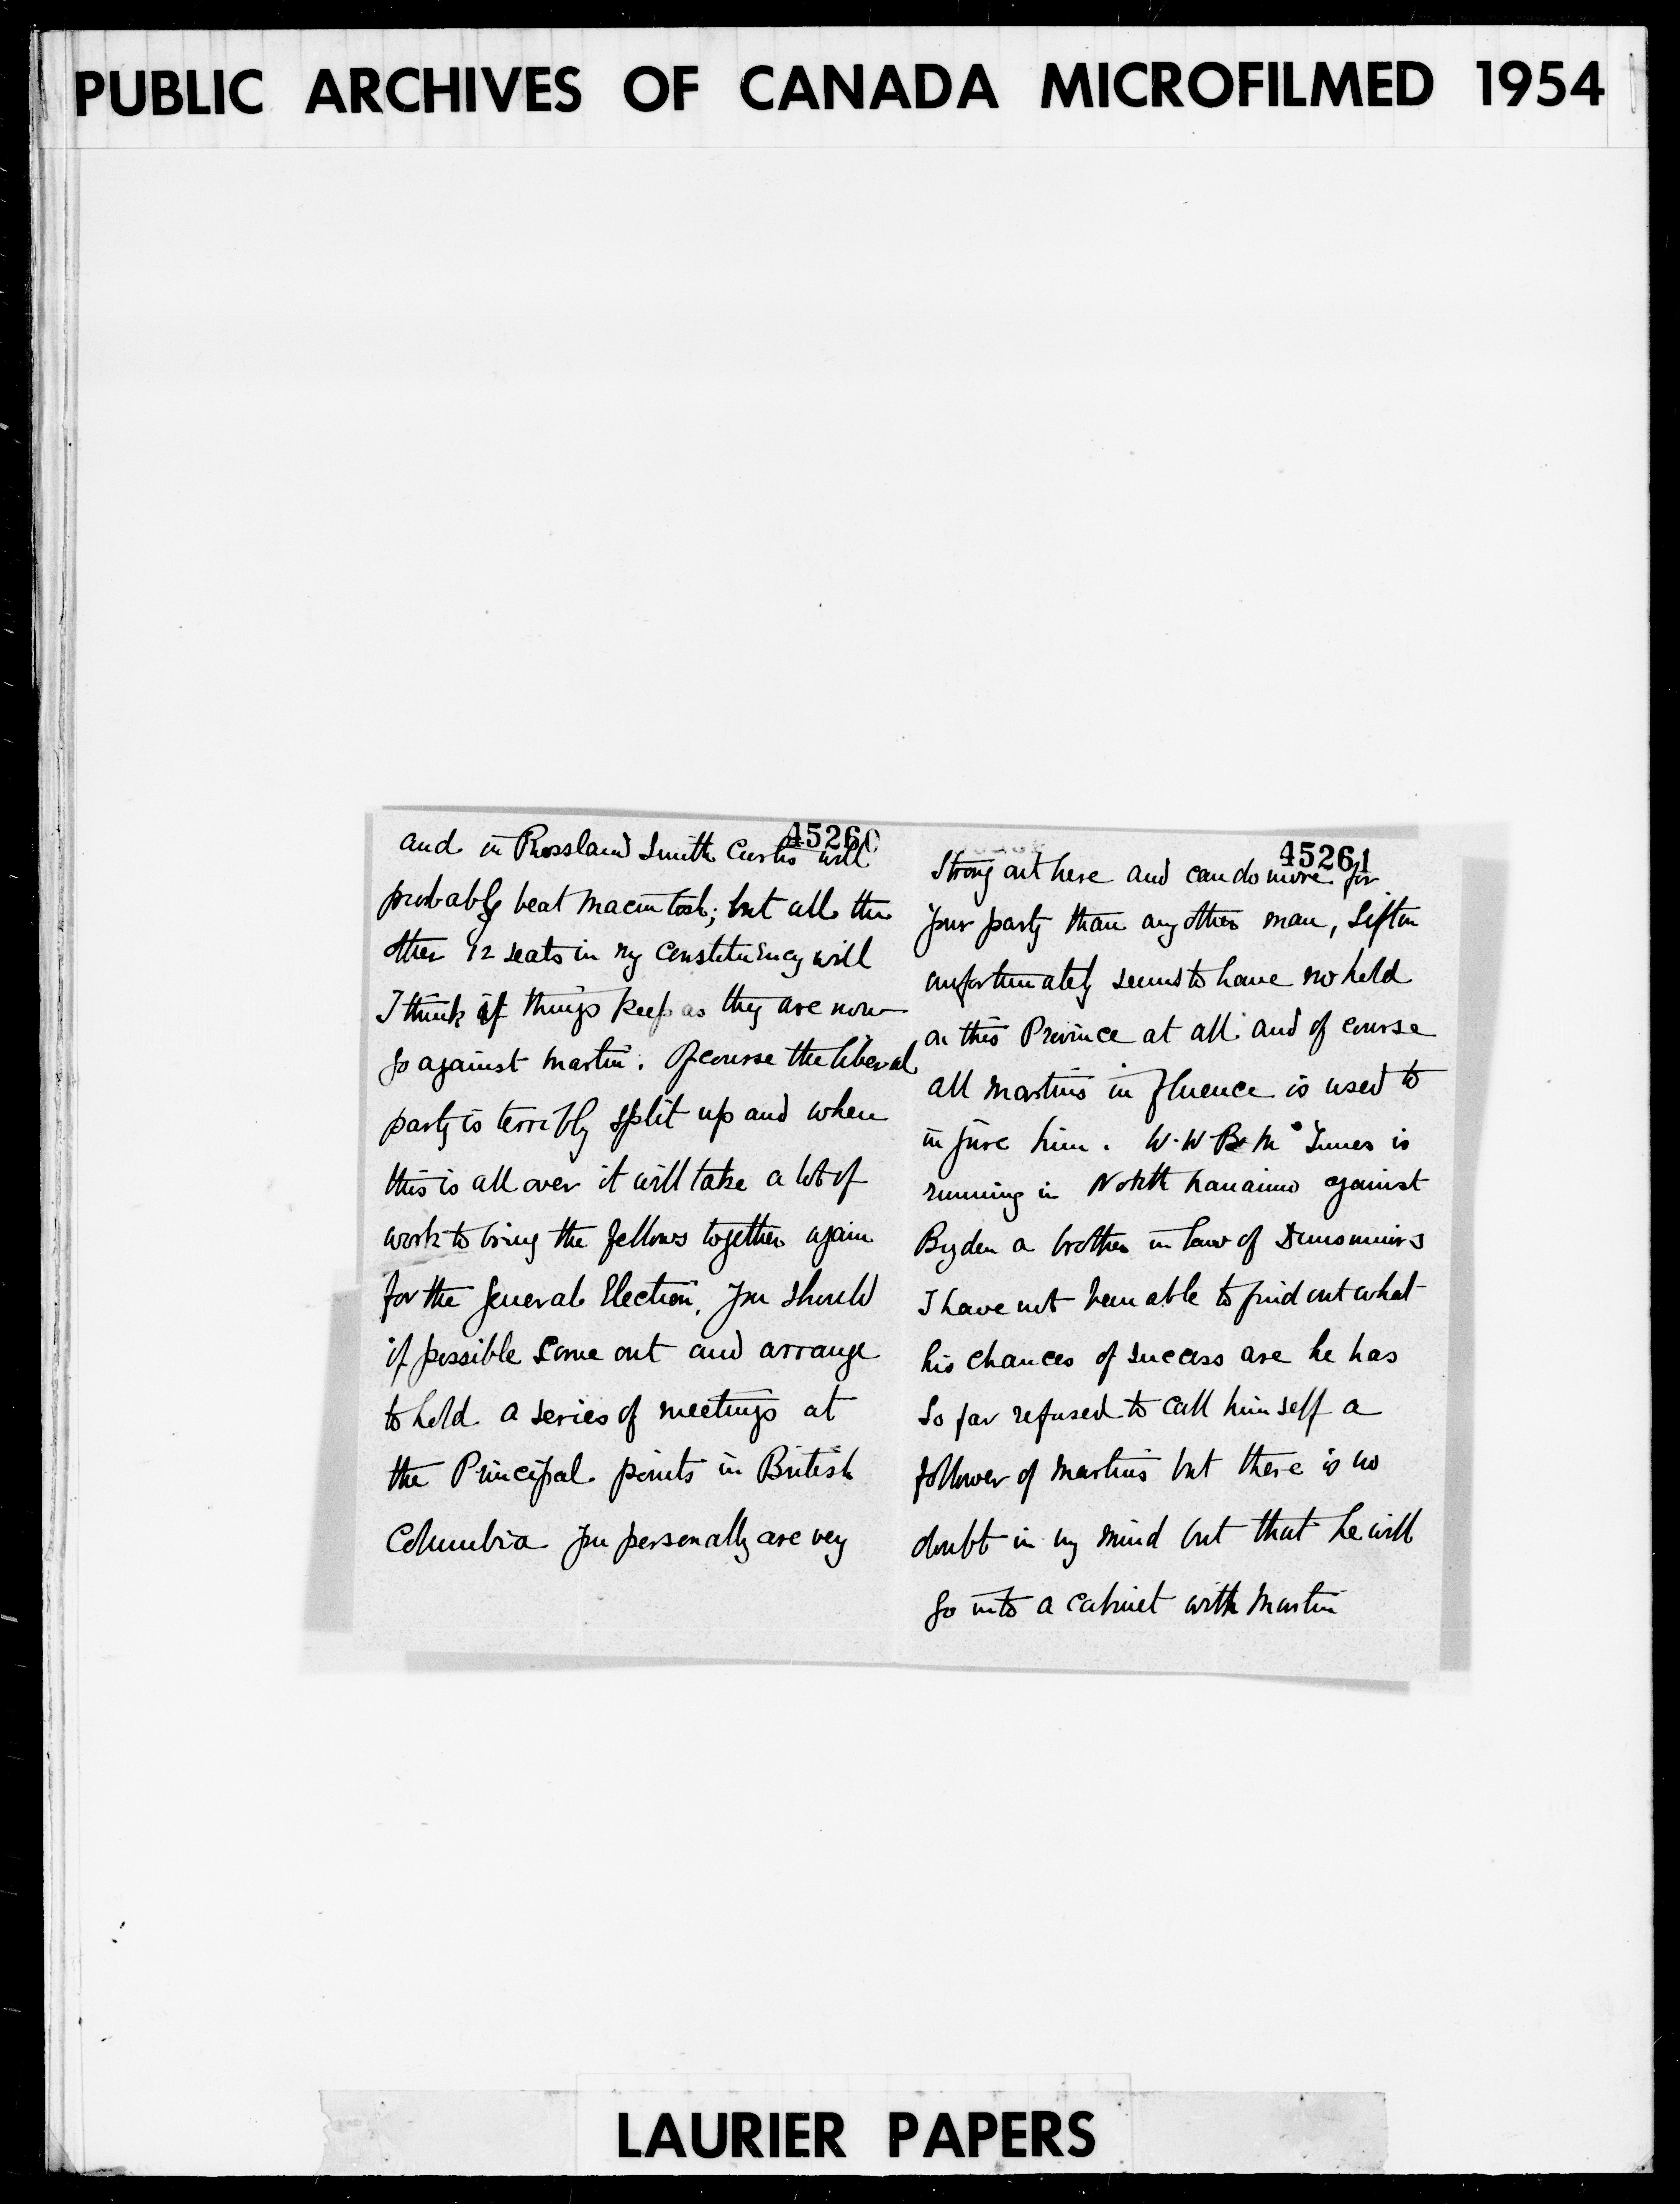 PUBLIC ARCHIVES OF CANADA MICROFILMED 1954
45260
and in Rossland Smith Curtis will
probably beat Macintosh; but all the
other 12 seats in my constituency will
I think if things keep as they are now
go against Martin. Of course the liberal
party is terribly split up and when
this is all over it will take a lot of
work to bring the fellows together again
for the General Election, you should
if possible come out and arrange
to hold a series of meetings at
the Principal points in British
Columbia you personally are very
45261
Strong out here and can do more for
your party than any other man, Sifton
unfortunately seems to have no hold
on this Province at all and of course
all Martins influence is used to
injure him. W.W.B. McInnes is
running in North Nanaimo against
Bryden a brother in law of Dunsmuirs
I have not been able to find out what
his chances of success are he has
so far refused to call himself a
follower of Martins but there is no
doubt in my mind but that he will
go into a cabinet with Martin
LAURIER PAPERS